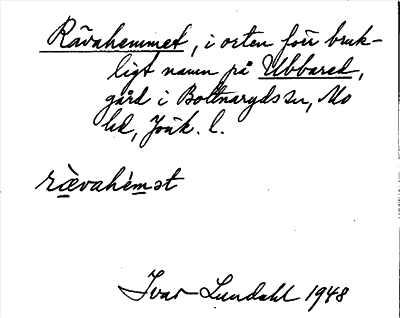 Rävahemmet, i orten förr bruk-
ligt namn på Ubbared,
gård i Bottnaryds sn, Mo
hd, Jönk. l.
rävahèmət
Ivar Lundahl 1948